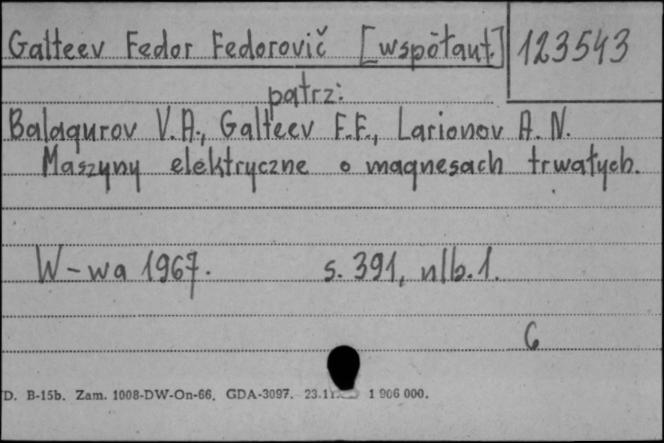 Galteev Fedor Fedorovič [współaut.] 123543
patrz:
Balagurov V.A., Galteev F.F., Larionov A.N.
Maszyny elektryczne o magnesach trwałych.
W-wa 1967. s. 391, nlb.1.
6
D. B-15b. Zam. 1008-DW-On-66. GDA-3097. 1 906 000.